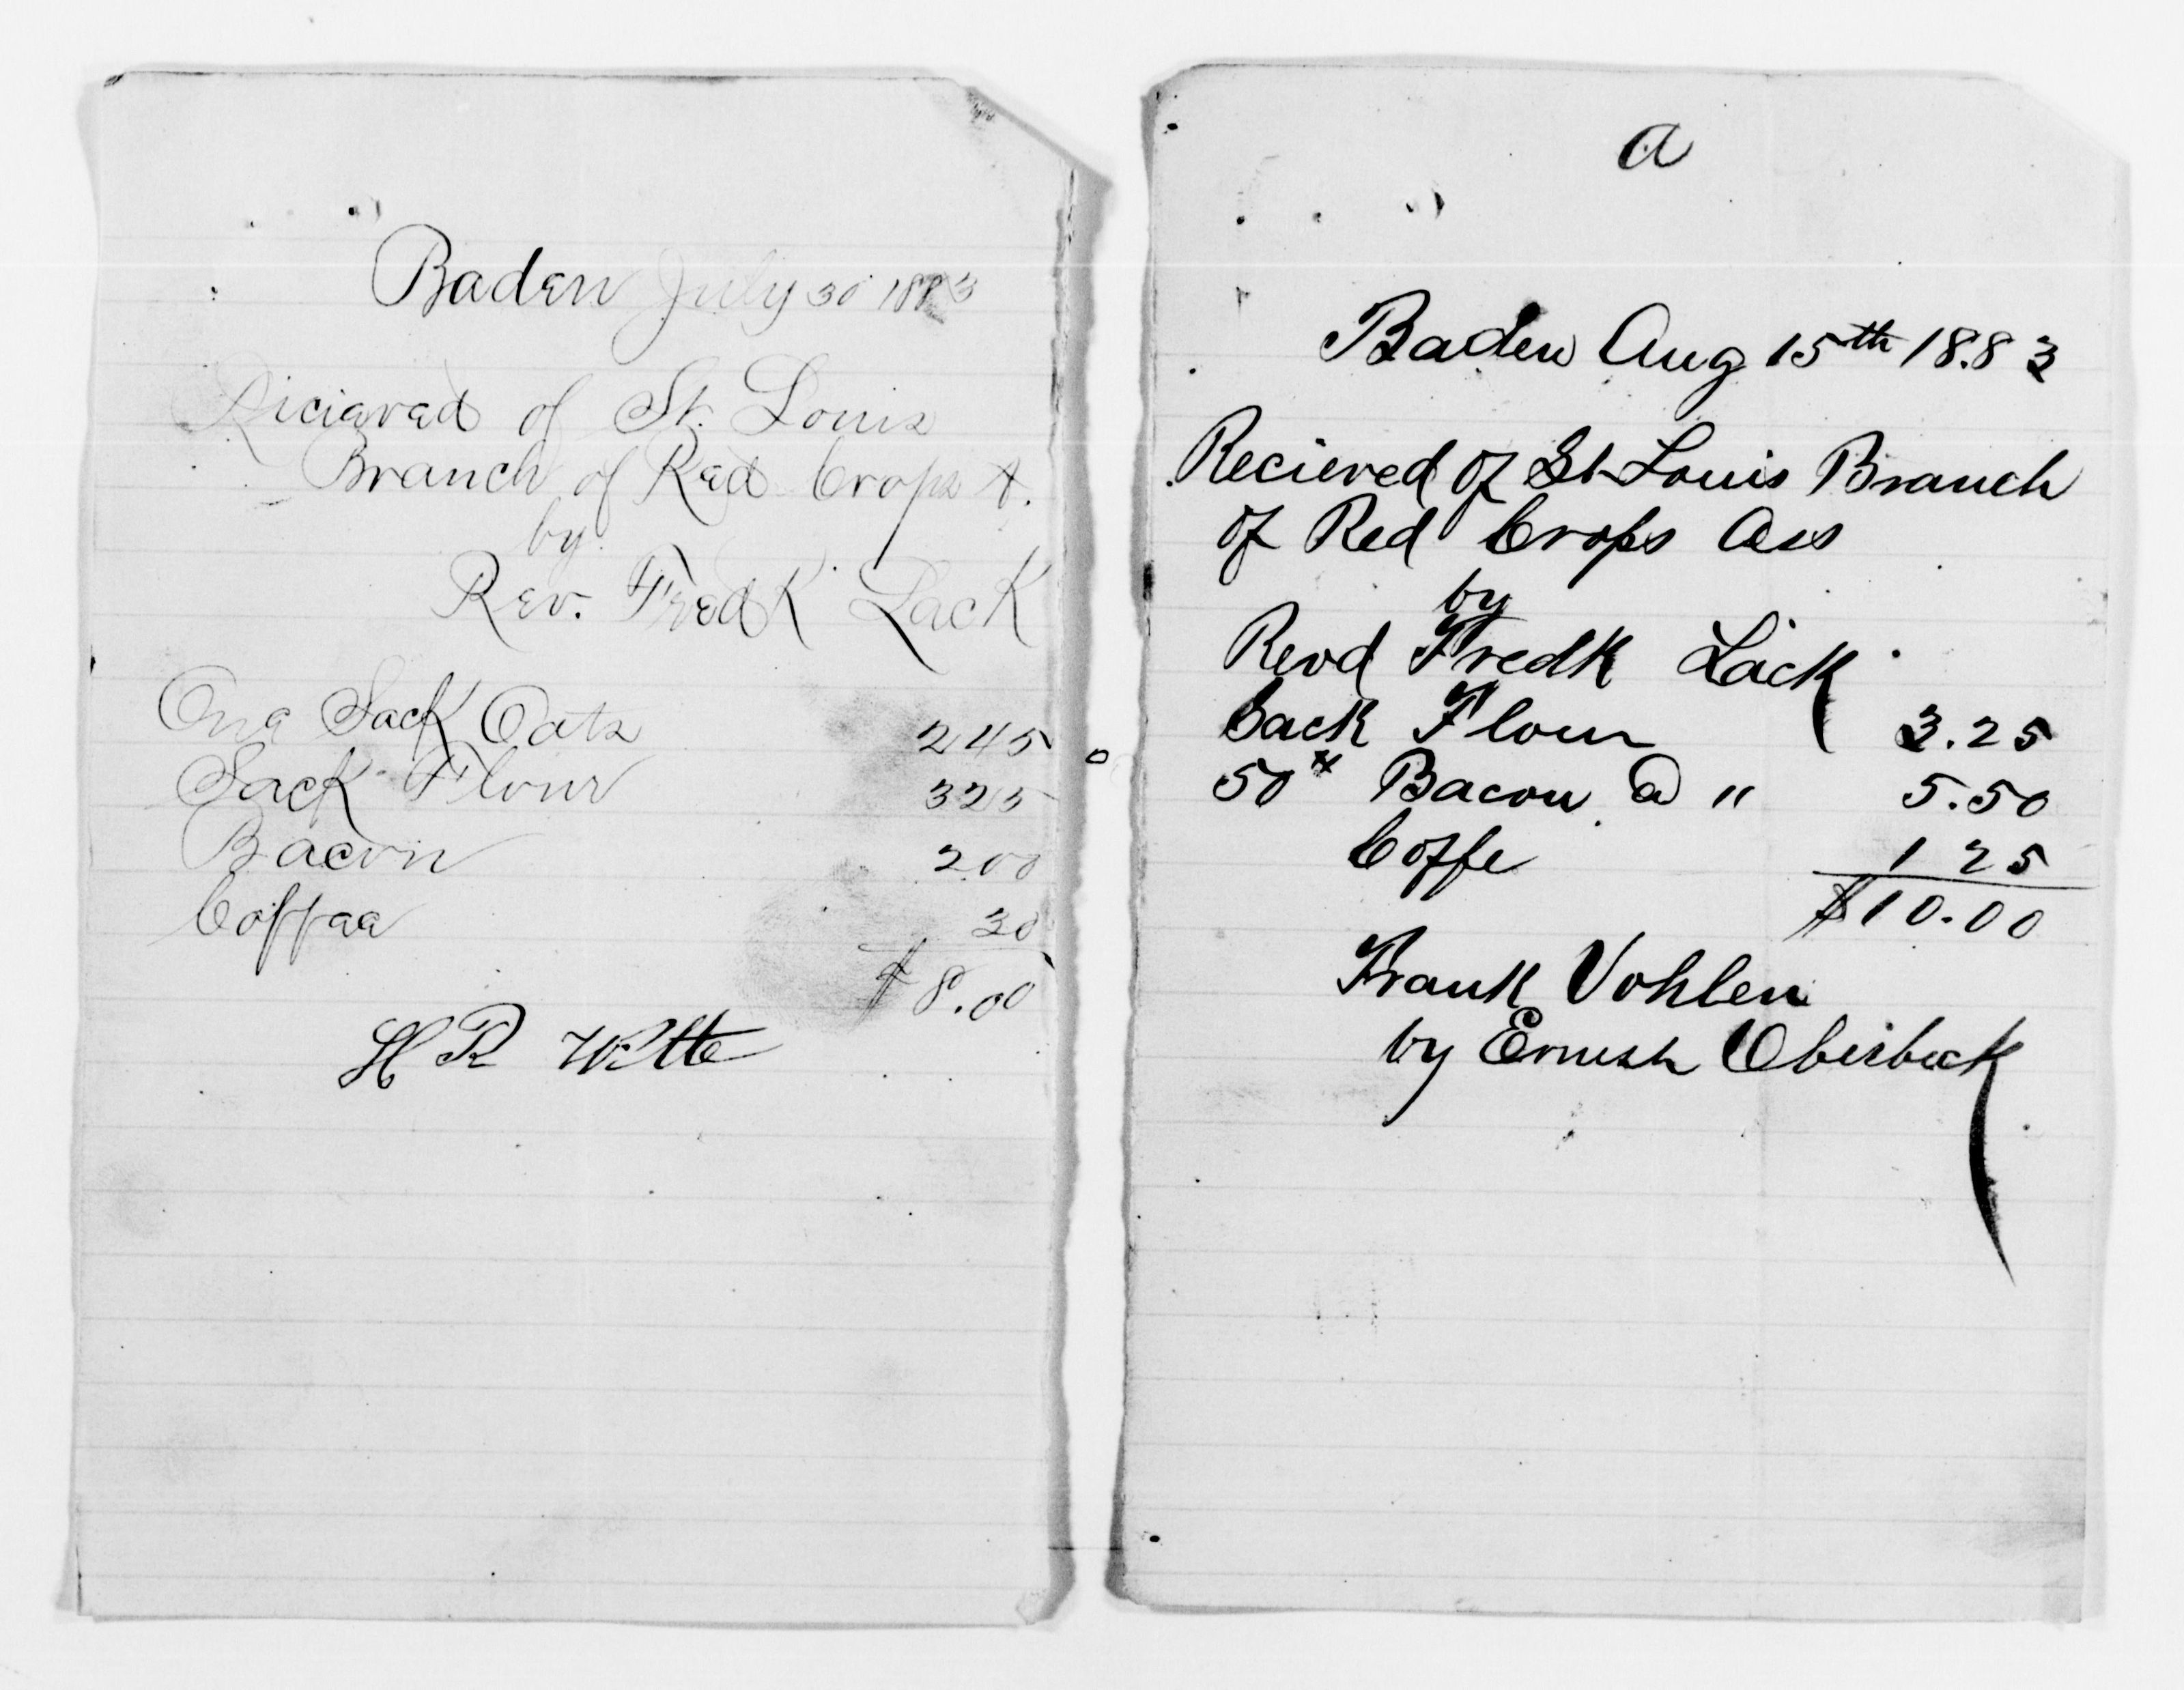 Baden July 30 1883
Riciavad of St. Louis
Branch of Red Cross A.
by
Rev. Fredk Lack
One Sack Oats 245
Sack Flour 325
Bacon 200
Coffaa 30
$8.00
H R Witte
a
Baden Aug 15th 1883
Recieved of St Louis Branch
of Red Cross Ass
by
Revd Fredk Lack
Sack Flour 3.25
50# Bacon @ " 5.50
Coffe 1 25
$10.00
Frank Vohlen
by Ernest Oberbeck